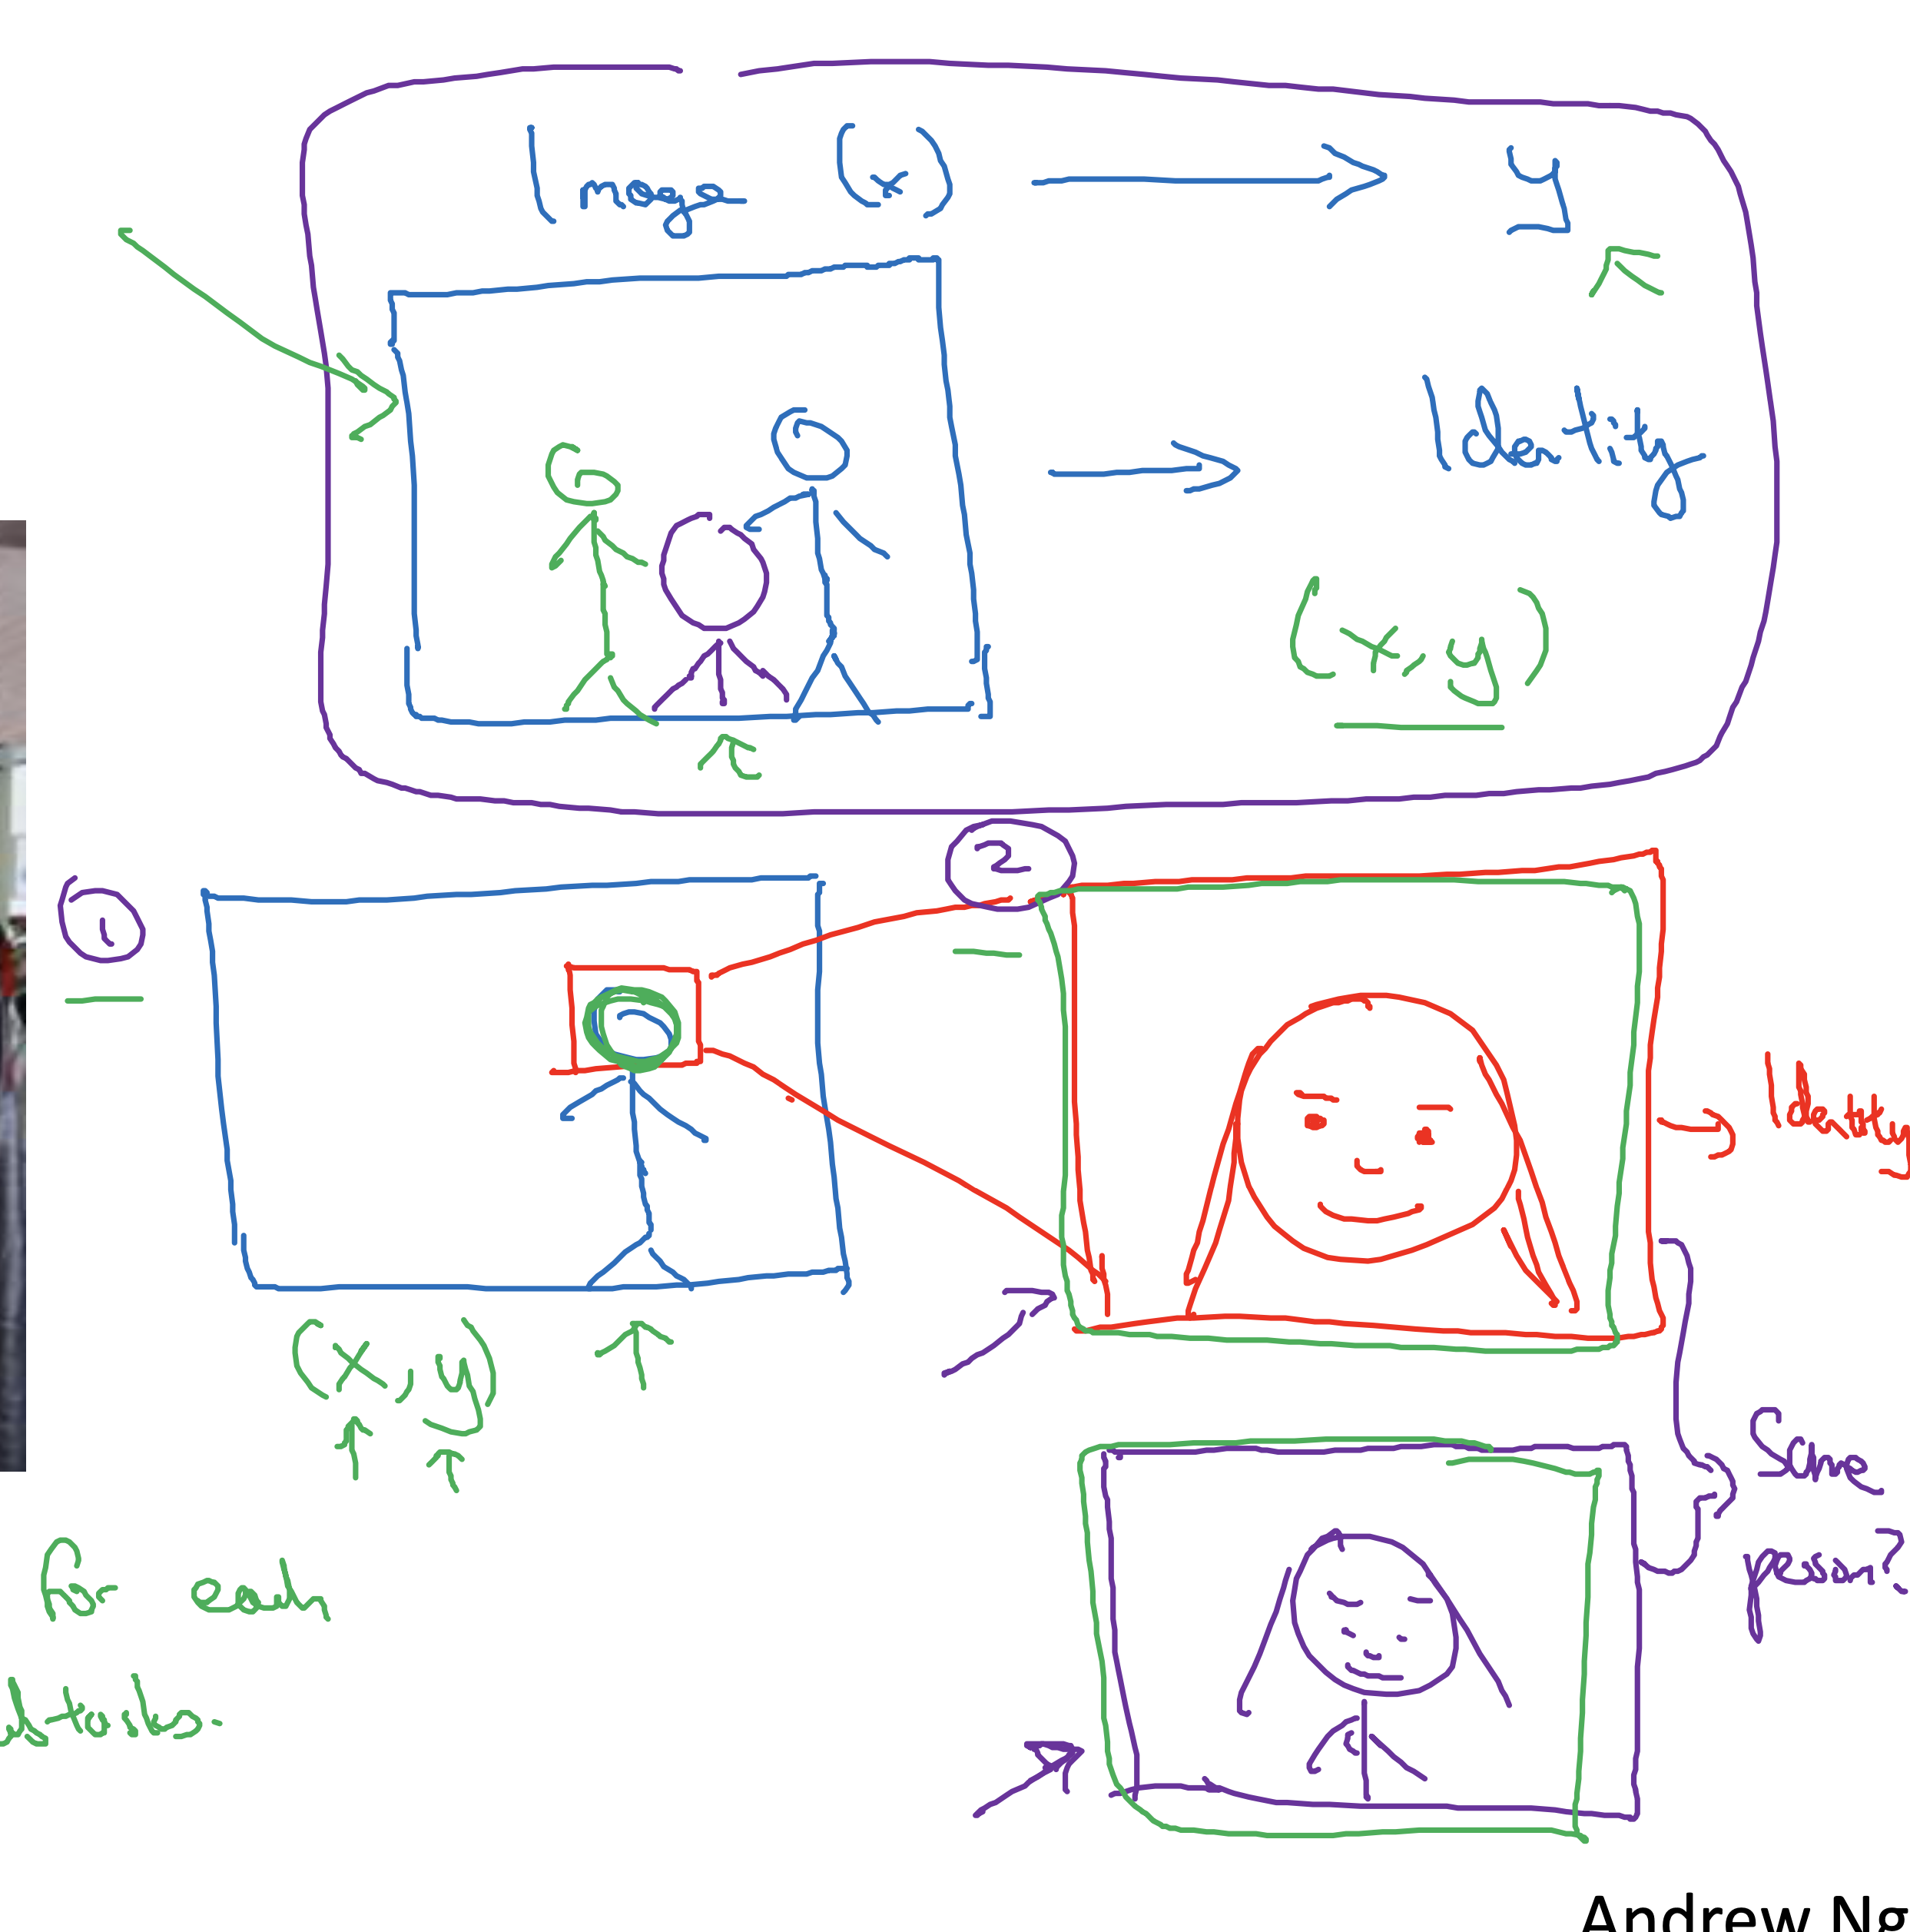 Image (x) → y
→ Identity
(x, y)
1
2
→ Identity
(x, y)
Same
person?
for each
btasks.
Andrew Ng